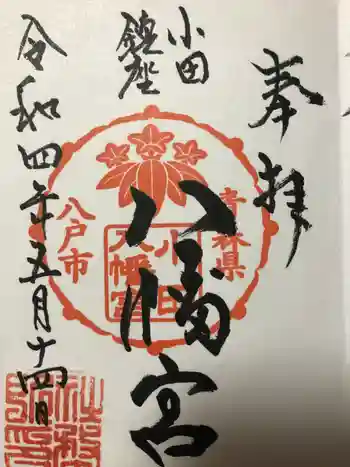 奉拝
小田
鎮座
八幡宮
令和四年五月十四日
青森県
八戸市
小田
八幡宮